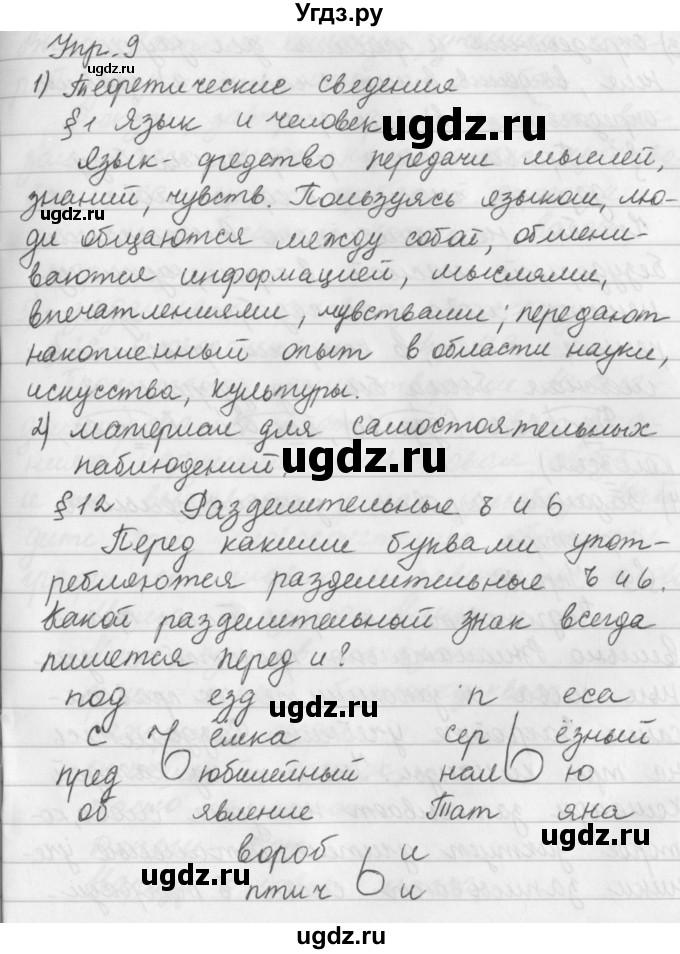 Угдз.ру
Упр. 9
ugdz.ru
1) Теоретические сведения
ugdz.ru
§1 Язык и человек
ugdz.ru
Язык - средство передачи мыслей,
знаний, чувств. Пользуясь языком, лю-
ugdz.ru
ди общаются между собой, обмени-
ваются информацией, мыслями,
впечатлениями, чувствами; передают
ugdz.ru
накопленный опыт в области науки,
искусства, культуры.
ugdz.ru
2) материал для самостоятельных
наблюдений.
ugdz.ru
§12 Разделительные ъ и ь
ugdz.ru
Перед какими буквами упот-
ребляются разделительные ъ и ь.
Какой разделительный знак всегда
пишется перед и?
под езд п еса
ugdz.ru
с ъ ёмка сер ь ёзный
пред юбилейный нал ю
об явление Тат яна
ugdz.ru
вороб и
ugdz.ru
птич ь и
ugdz.ru